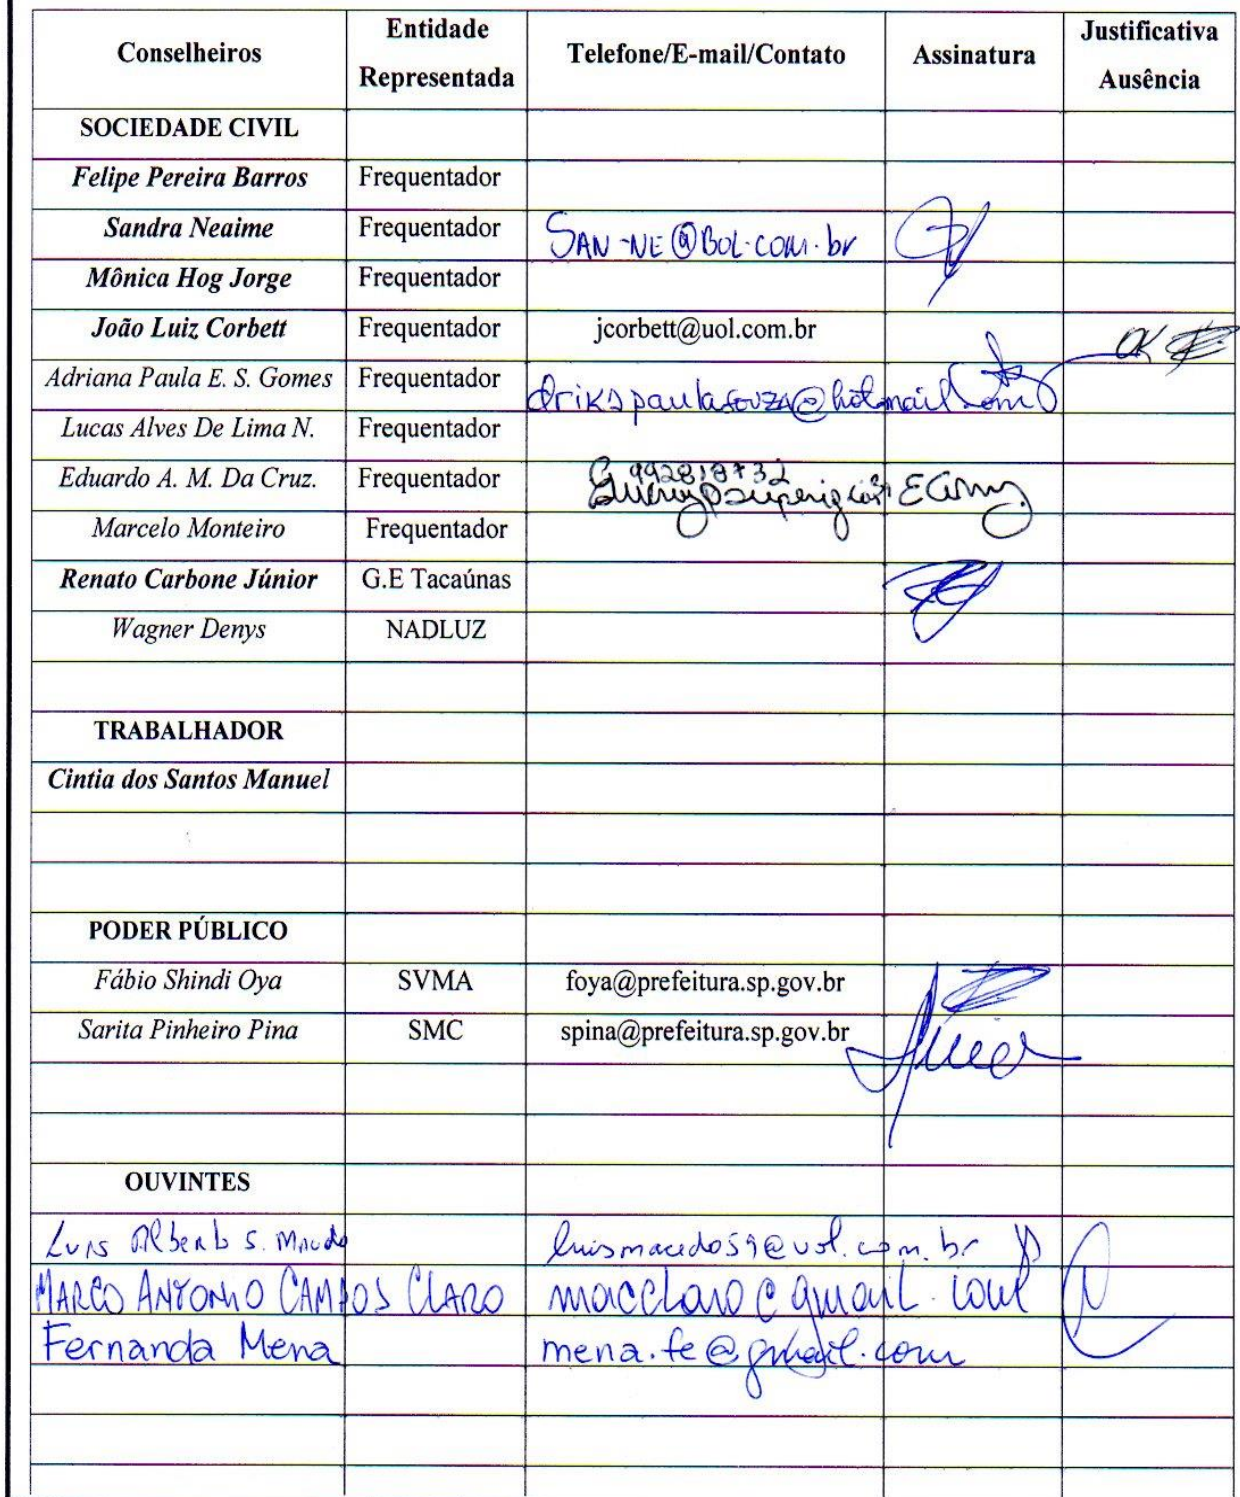 Conselheiros Entidade Representada Telefone/E-mail/Contato Assinatura Justificativa Ausência
SOCIEDADE CIVIL
Felipe Pereira Barros Frequentador
Sandra Neaime Frequentador SAN-NE@BOL.COM.br
Mônica Hog Jorge Frequentador
João Luiz Corbett Frequentador jcorbett@uol.com.br OK
Adriana Paula E. S. Gomes Frequentador drikapaulasouza@hotmail.com
Lucas Alves De Lima N. Frequentador
Eduardo A. M. Da Cruz. Frequentador 992818732
Marcelo Monteiro Frequentador
Renato Carbone Júnior G.E Tacaúnas
Wagner Denys NADLUZ
TRABALHADOR
Cintia dos Santos Manuel
PODER PÚBLICO
Fábio Shindi Oya SVMA foya@prefeitura.sp.gov.br
Sarita Pinheiro Pina SMC spina@prefeitura.sp.gov.br
OUVINTES
Luis Alberto S. Macedo luismacedo59@uol.com.br
MARCO ANTONIO CAMPOS CLARO macclaro@gmail.com
Fernanda Mena mena.fe@gmail.com